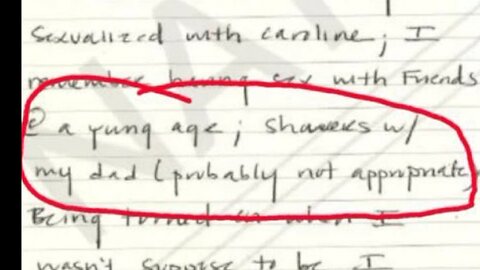 sexualized with caroline; I
remember having sex with Friends
@ a yung age; showers w/
my dad (probably not appropriate)
Being turned on when I
wasn't suppose to be I